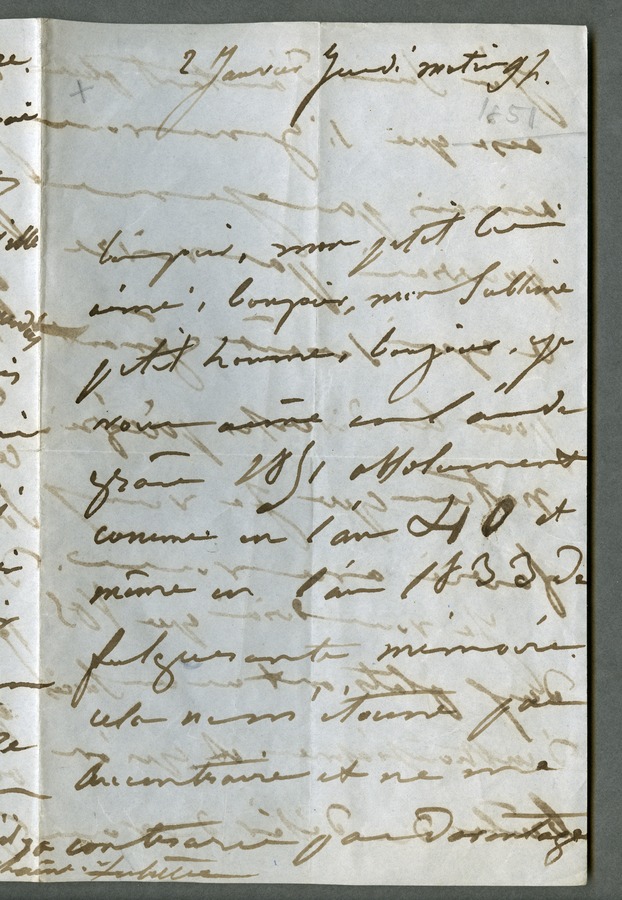 2 Janvier Jeudi matin 9h.
1851
bonjour, mon petit bien
aimé, bonjour, mon sublime
petit homme, bonjour, je
vous aime en l'an de
grâce 1851 absolument
comme en l'an 40 et
même en l'an 1833 de
fulgurante mémoire.
cela ne m'étonne pas
au contraire et ne me
contrarie pas davantage